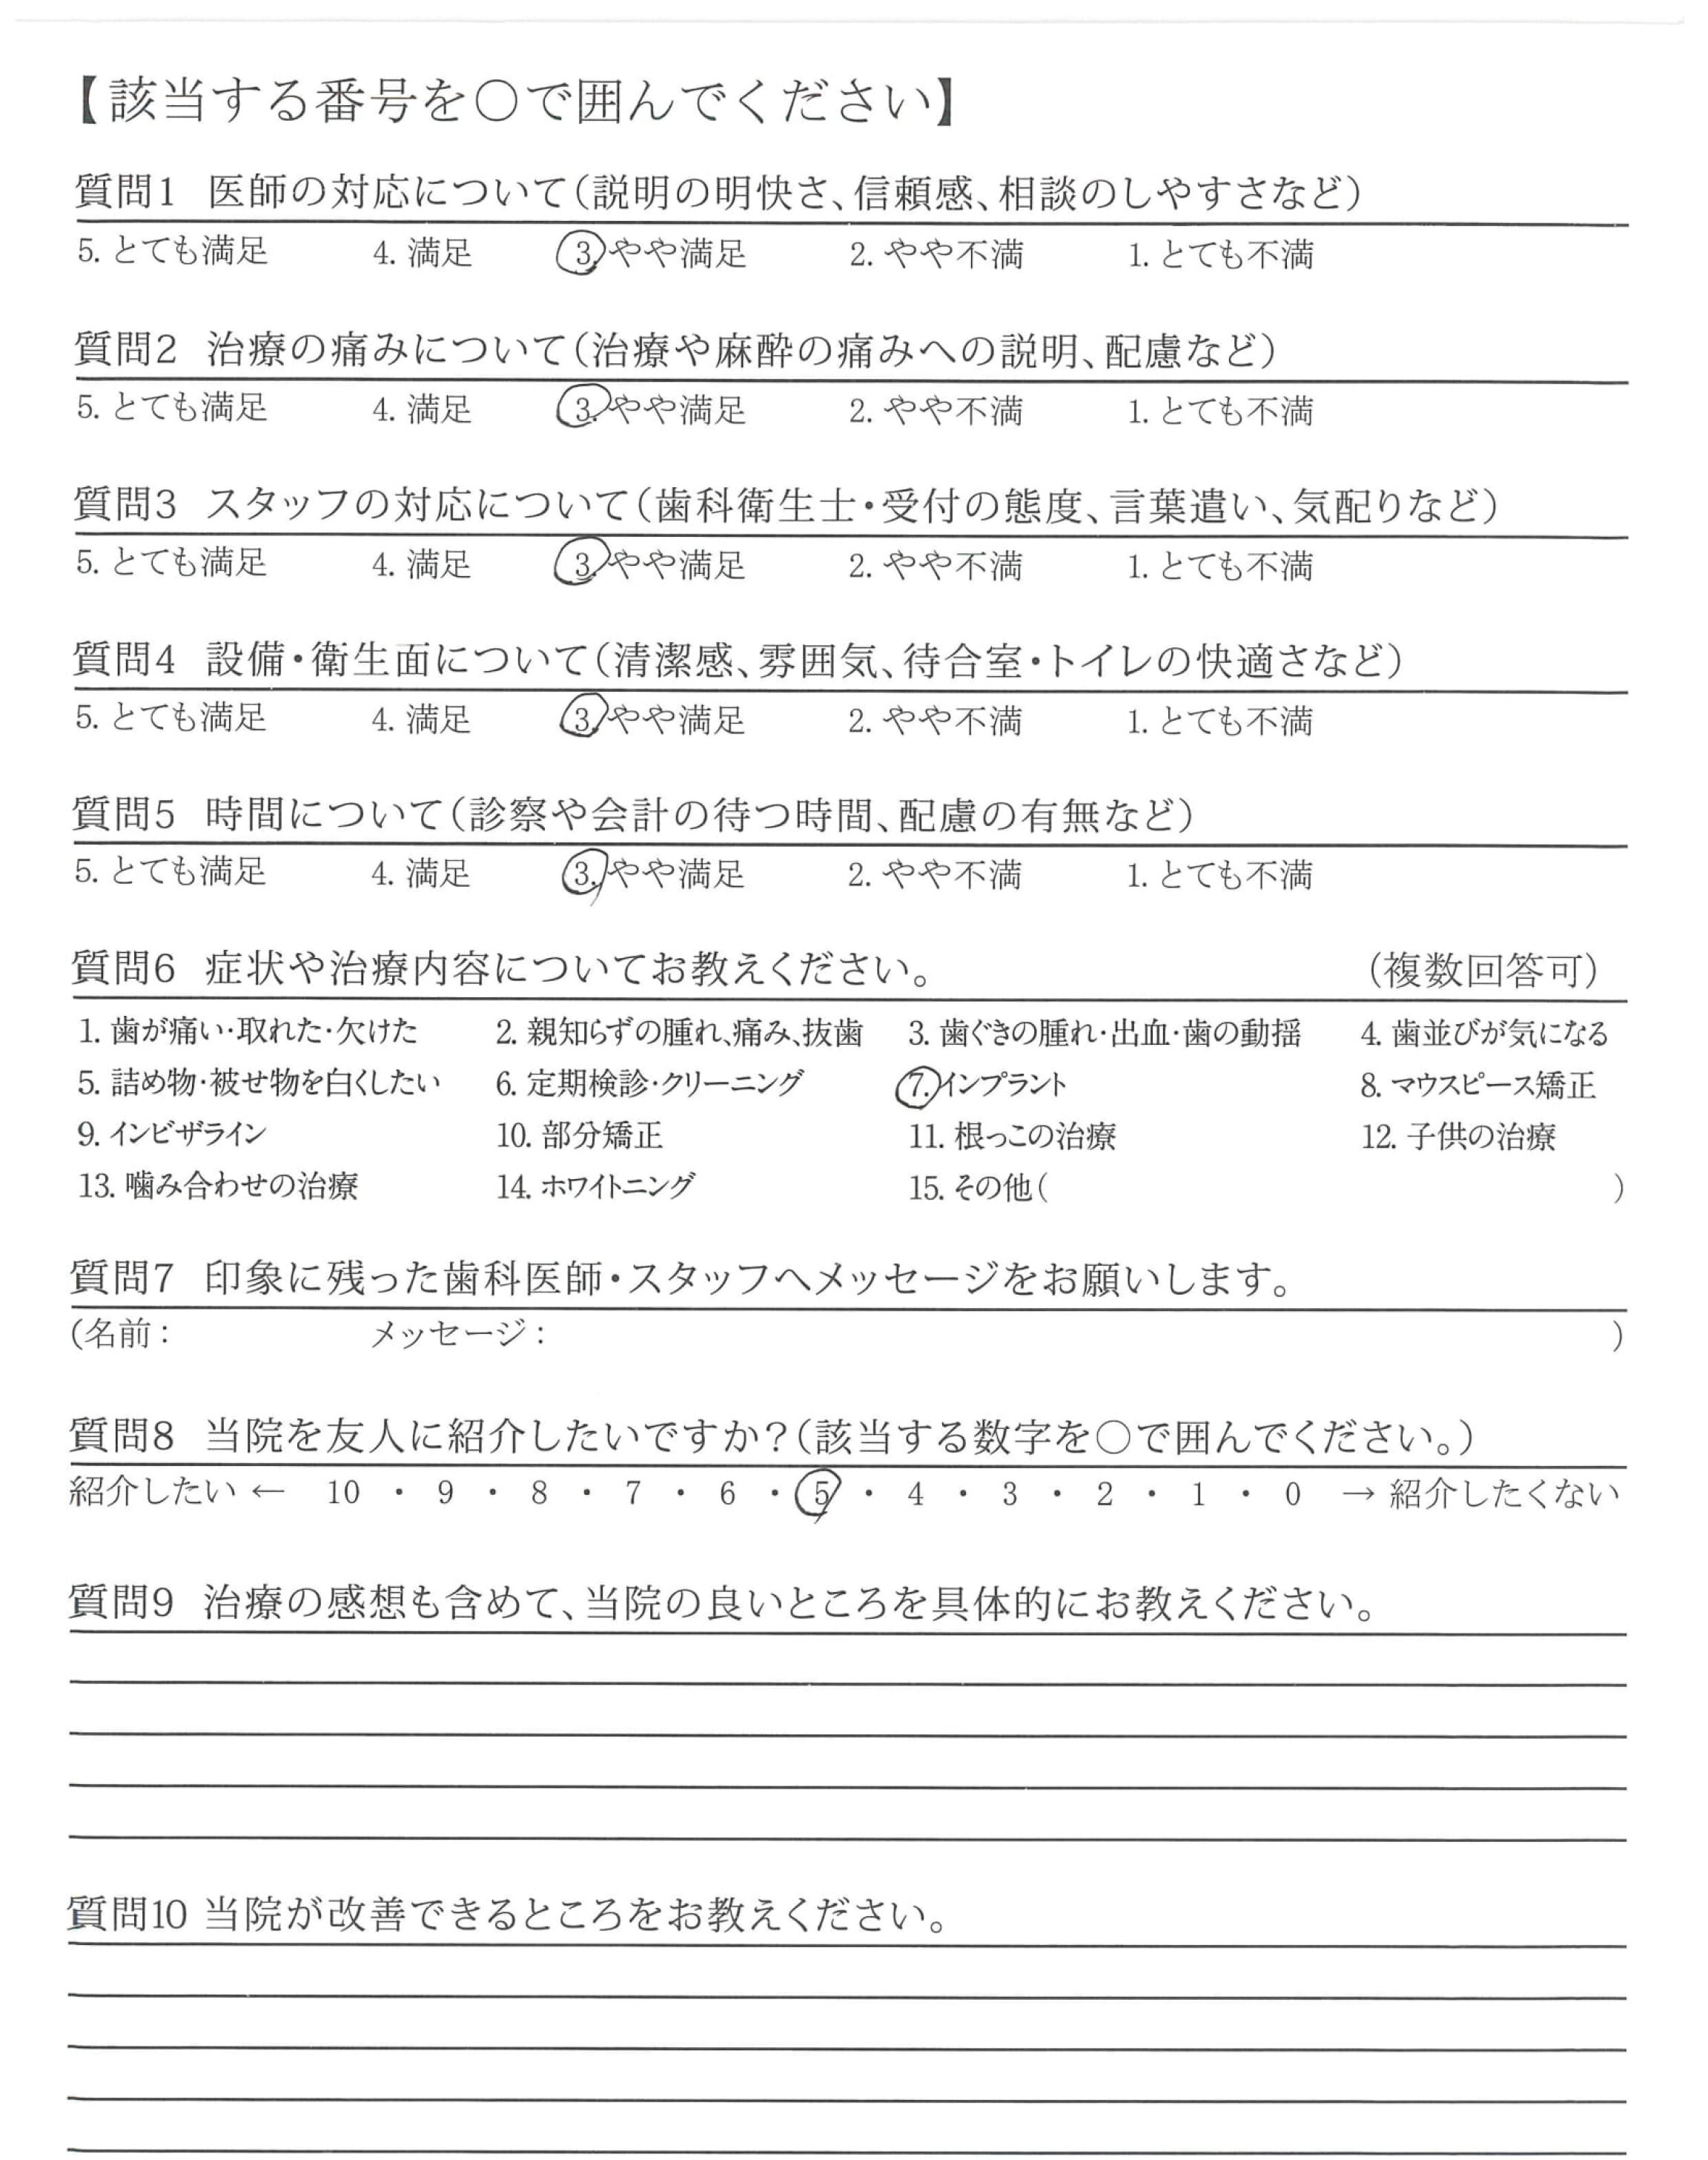 【該当する番号を〇で囲んでください】
質問1 医師の対応について(説明の明快さ、信頼感、相談のしやすさなど)
5. とても満足 4. 満足 3. やや満足 2. やや不満 1. とても不満
質問2 治療の痛みについて(治療や麻酔の痛みへの説明、配慮など)
5. とても満足 4. 満足 3. やや満足 2. やや不満 1. とても不満
質問3 スタッフの対応について(歯科衛生士・受付の態度、言葉遣い、気配りなど)
5. とても満足 4. 満足 3. やや満足 2. やや不満 1. とても不満
質問4 設備・衛生面について(清潔感、雰囲気、待合室・トイレの快適さなど)
5. とても満足 4. 満足 3. やや満足 2. やや不満 1. とても不満
質問5 時間について(診察や会計の待つ時間、配慮の有無など)
5. とても満足 4. 満足 3. やや満足 2. やや不満 1. とても不満
質問6 症状や治療内容についてお教えください。 (複数回答可)
1. 歯が痛い・取れた・欠けた 2. 親知らずの腫れ、痛み、抜歯 3. 歯ぐきの腫れ・出血・歯の動揺 4. 歯並びが気になる
5. 詰め物・被せ物を白くしたい 6. 定期検診・クリーニング 7. インプラント 8. マウスピース矯正
9. インビザライン 10. 部分矯正 11. 根っこの治療 12. 子供の治療
13. 噛み合わせの治療 14. ホワイトニング 15. その他( )
質問7 印象に残った歯科医師・スタッフへメッセージをお願いします。
(名前: メッセージ: )
質問8 当院を友人に紹介したいですか?(該当する数字を〇で囲んでください。)
紹介したい ← 10 ・ 9 ・ 8 ・ 7 ・ 6 ・ 5 ・ 4 ・ 3 ・ 2 ・ 1 ・ 0 → 紹介したくない
質問9 治療の感想も含めて、当院の良いところを具体的にお教えください。
質問10 当院が改善できるところをお教えください。